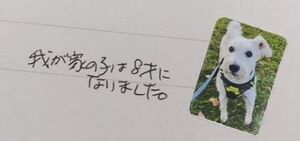 我が家の子は8才に
なりました。